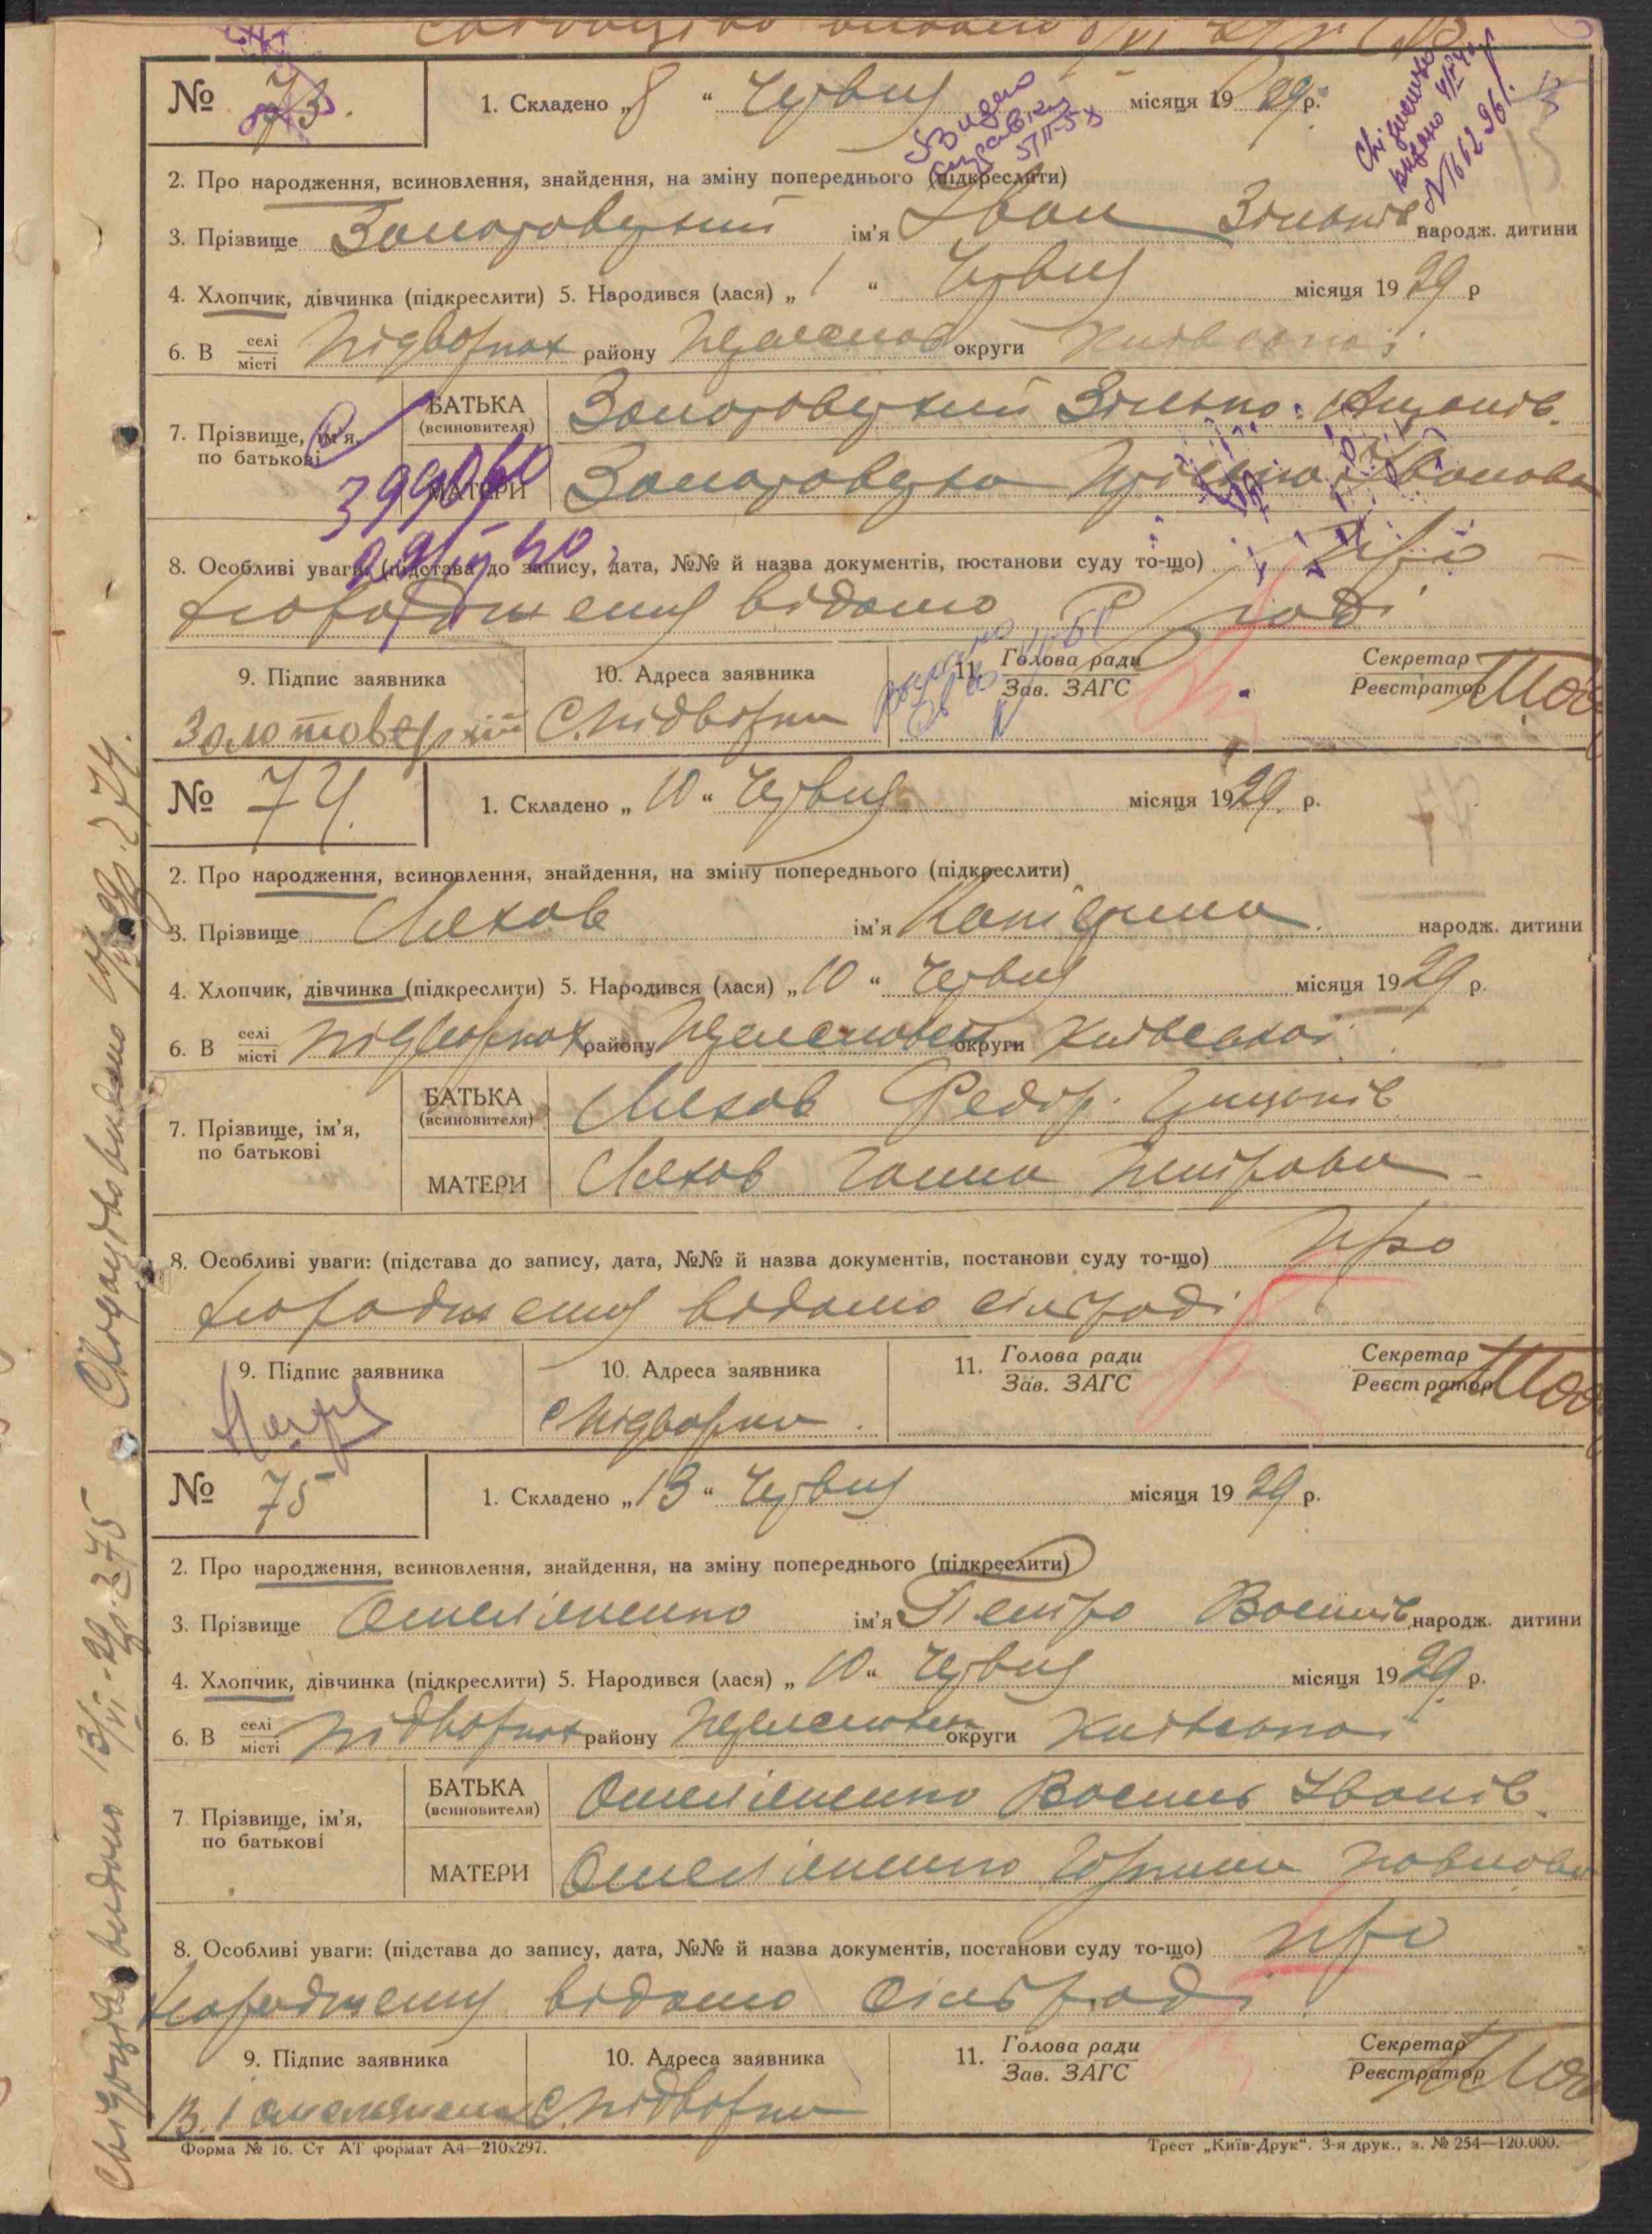 № 73. 1. Складено „8“ Червня місяця 1929 р.
2. Про народження, всиновлення, знайдення, на зміну попереднього (підкреслити)
3. Прізвище Золотоверхий ім'я Іван Зіньків народж. дитини
4. Хлопчик, дівчинка (підкреслити) 5. Народився (лася) „1“ Червня місяця 1929 р
6. В селі місті Підвірках району округи Київської
7. Прізвище, ім'я, по батькові
БАТЬКА (всиновителя) Золотоверхий Зінько
МАТЕРИ Золотоверха Іванова
8. Особливі уваги: (підстава до запису, дата, №№ й назва документів, постанови суду то-що) Про
народження відомо С/раді
9. Підпис заявника 10. Адреса заявника 11. Голова ради Зав. ЗАГС Секретар Реєстратор
Золотоверхий С. Підвірки
399060
№ 74. 1. Складено „10“ Червня місяця 1929 р.
2. Про народження, всиновлення, знайдення, на зміну попереднього (підкреслити)
3. Прізвище Ляхов ім'я Катерина народж. дитини
4. Хлопчик, дівчинка (підкреслити) 5. Народився (лася) „10“ Червня місяця 1929 р.
6. В селі місті Підвірках району округи Київської
7. Прізвище, ім'я, по батькові
БАТЬКА (всиновителя) Ляхов Федір
МАТЕРИ Ляхов Ганна Петрова
8. Особливі уваги: (підстава до запису, дата, №№ й назва документів, постанови суду то-що) Про
народження відомо сільраді
9. Підпис заявника 10. Адреса заявника 11. Голова ради Зав. ЗАГС Секретар Реєстратор
С Підвірки
№ 75 1. Складено „13“ Червня місяця 1929 р.
2. Про народження, всиновлення, знайдення, на зміну попереднього (підкреслити)
3. Прізвище Омеляненко ім'я Петро Васильів народж. дитини
4. Хлопчик, дівчинка (підкреслити) 5. Народився (лася) „10“ Червня місяця 1929 р.
6. В селі місті Підвірках району округи Київської
7. Прізвище, ім'я, по батькові
БАТЬКА (всиновителя) Омеляненко Василь Іванів
МАТЕРИ Омеляненко Горпина Павлова
8. Особливі уваги: (підстава до запису, дата, №№ й назва документів, постанови суду то-що) Про
народження відомо Сільраді
9. Підпис заявника 10. Адреса заявника 11. Голова ради Зав. ЗАГС Секретар Реєстратор
В. І Омеляненко С. Підвірки
Форма № 16. Ст АТ формат А4—210х297. Трест „Київ-Друк“. 3-я друк., з. № 254—120.000.
Свідоцтво видано
Свідоцтво видано 13/VI-29р. з 75